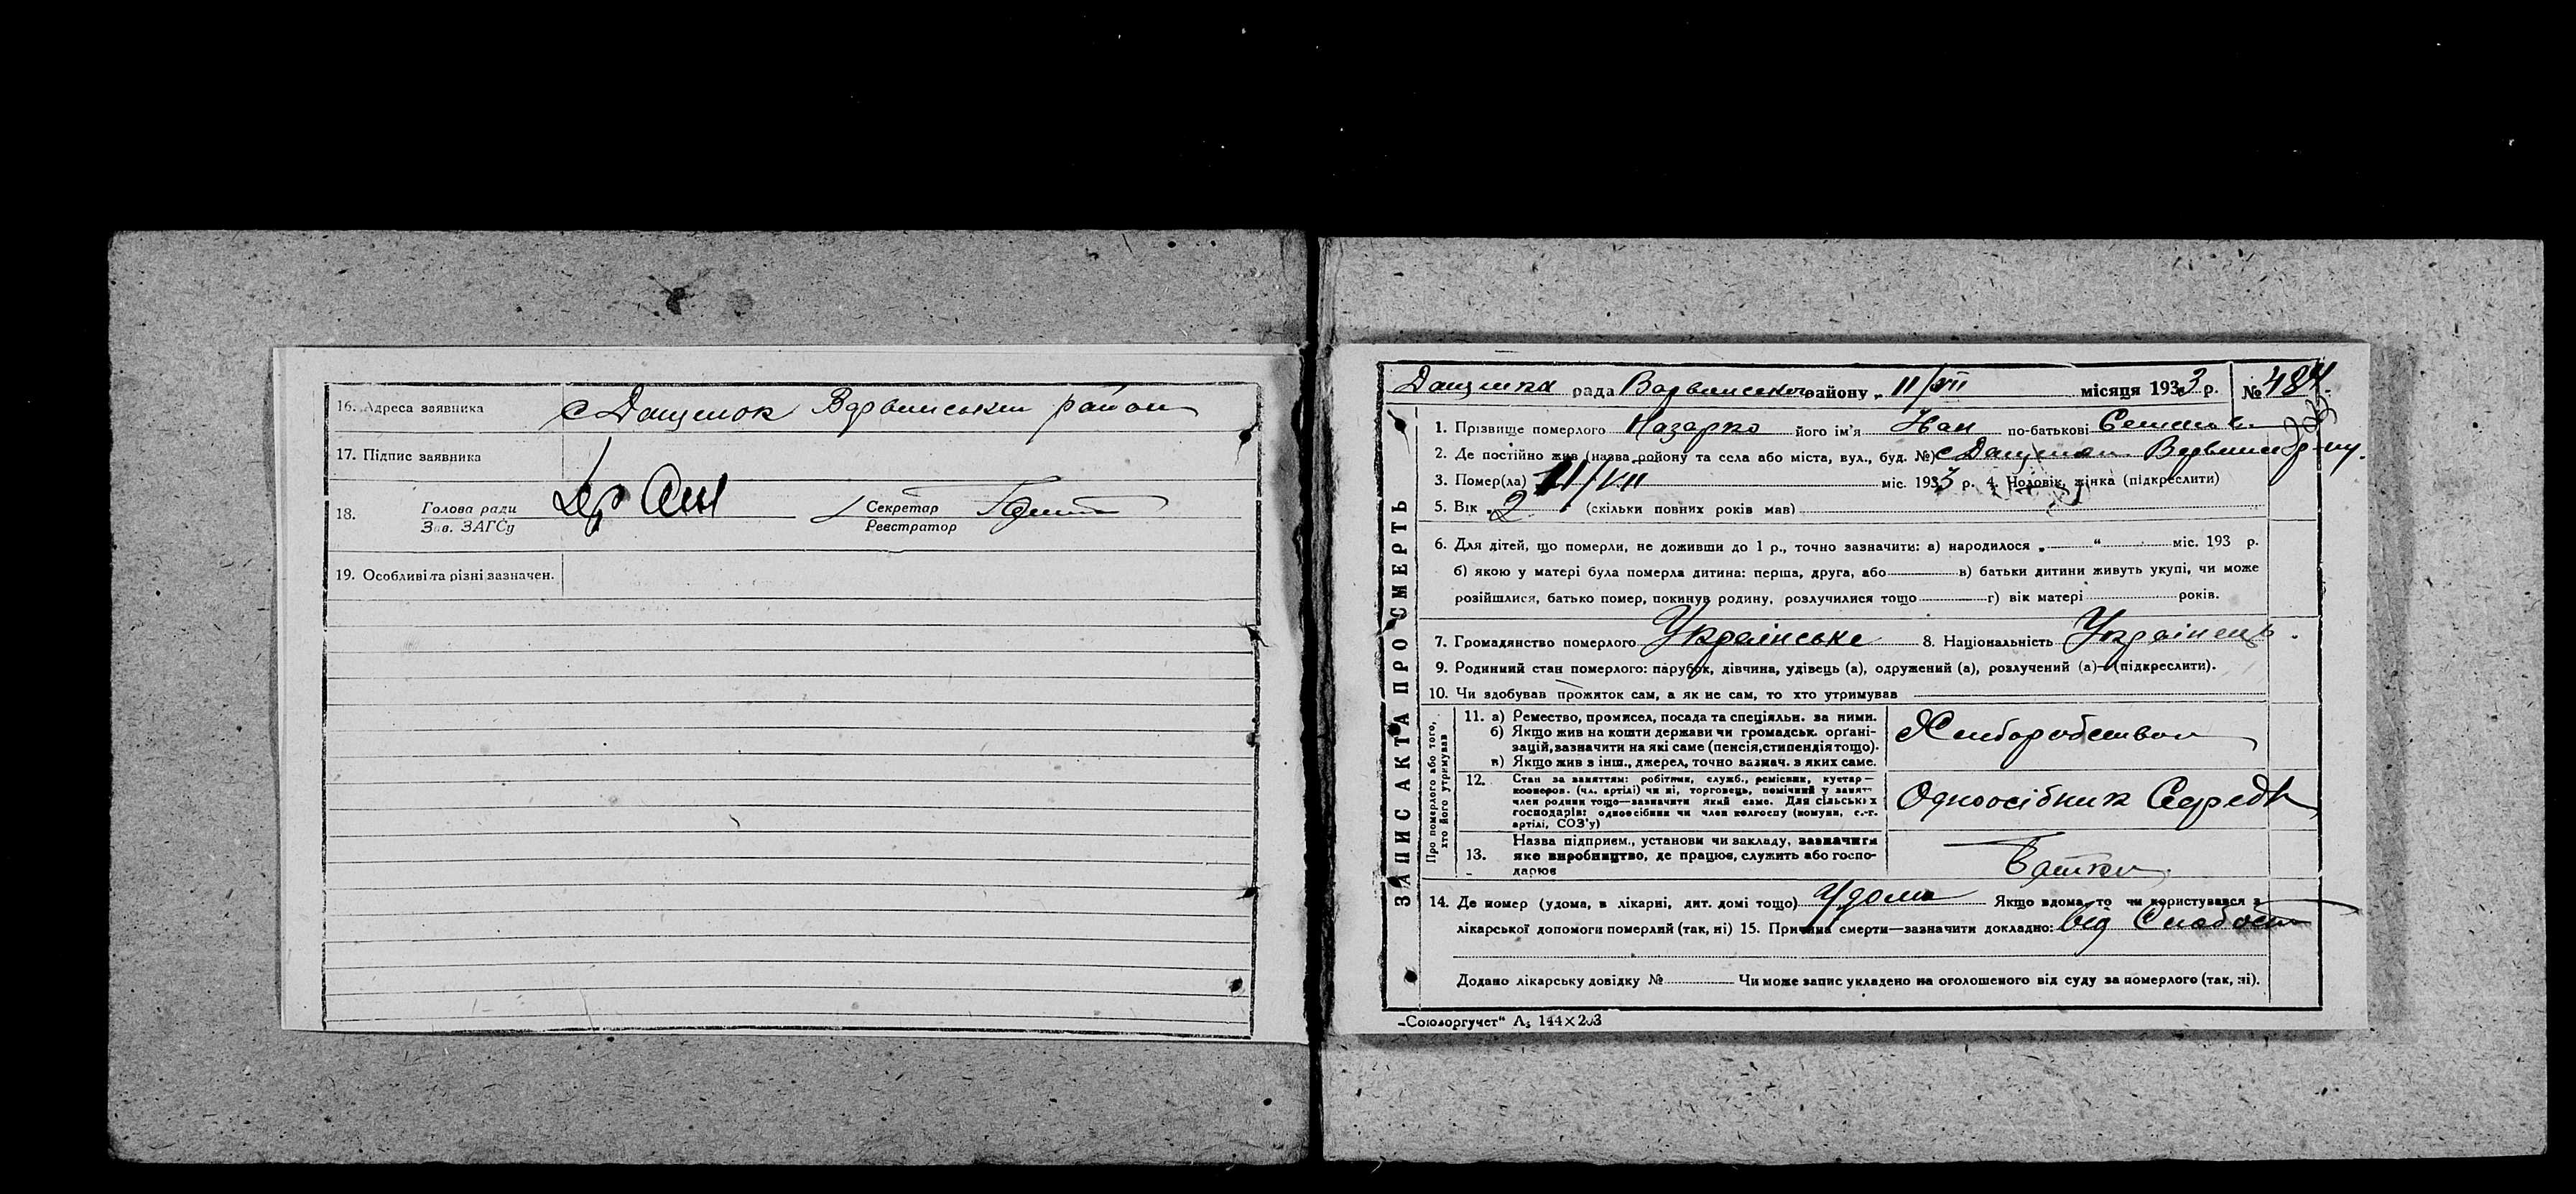 16. Адреса заявника с Дащенок Варвинський район
17. Підпис заявника
18. Голова ради
Зав. ЗАГСу
Секретар
Реєстратор
19. Особливі та різні зазначен.
ЗАПИС АКТА ПРО СМЕРТЬ
Дащенка рада Варвинського району „ 11/VII місяця 1933 р. № 484
1. Прізвище померлого Назарко його ім'я Іван по-батькові
2. Де постійно жив (назва району та села або міста, вул., буд. №) с Дащенки Варвинс р-ну.
3. Помер(ла) 11/VII міс. 1933 р. 4. Чоловік, жінка (підкреслити)
5. Вік „ 2 (скільки повних років мав)
6. Для дітей, що померли, не доживши до 1 р., точно зазначить: а) народилося „ “ міс. 193 р.
б) якою у матері була померла дитина: перша, друга, або в) батьки дитини живуть укупі, чи може
розійшлися, батько помер, покинув родину, розлучилися тощо г) вік матері років.
7. Громадянство померлого Українське 8. Національність Українець.
9. Родинний стан померлого: парубок, дівчина, удівець (а), одружений (а), розлучений (а)—(підкреслити).
10. Чи здобував прожиток сам, а як не сам, то хто утримував
Про померлого або того, хто його утримував
11. а) Ремество, промисел, посада та спеціяльн. за ними.
б) Якщо жив на кошти держави чи громадськ. органі-
зацій, зазначити на які саме (пенсія, стипендія тощо).
в) Якщо жив з інш., джерел, точно зазнач. з яких саме.
Хліборобством
12. Стан за заняттям: робітник, служб., ремісник, кустар—
кооперов. (чл. артілі) чи ні, торговець, помічний у занят—
член родини тощо—зазначити який саме. Для сільських
господарів: одноосібник чи член колгоспу (комуни, с.-г.
артілі, СОЗ'у)
Одноосібник Серед
13. Назва підприєм., установи чи закладу, зазначити
яке виробництво, де працює, служить або госпо-
дарює
Батьки
14. Де помер (удома, в лікарні, дит. домі тощо) Удома Якщо вдома, то чи користувався з
лікарської допомоги померлий (так, ні) 15. Причина смерти—зазначити докладно: від Слабости
Додано лікарську довідку № Чи може запис укладено на оголошеного від суду за померлого (так, ні).
„Союзоргучет“ А₅ 144×203